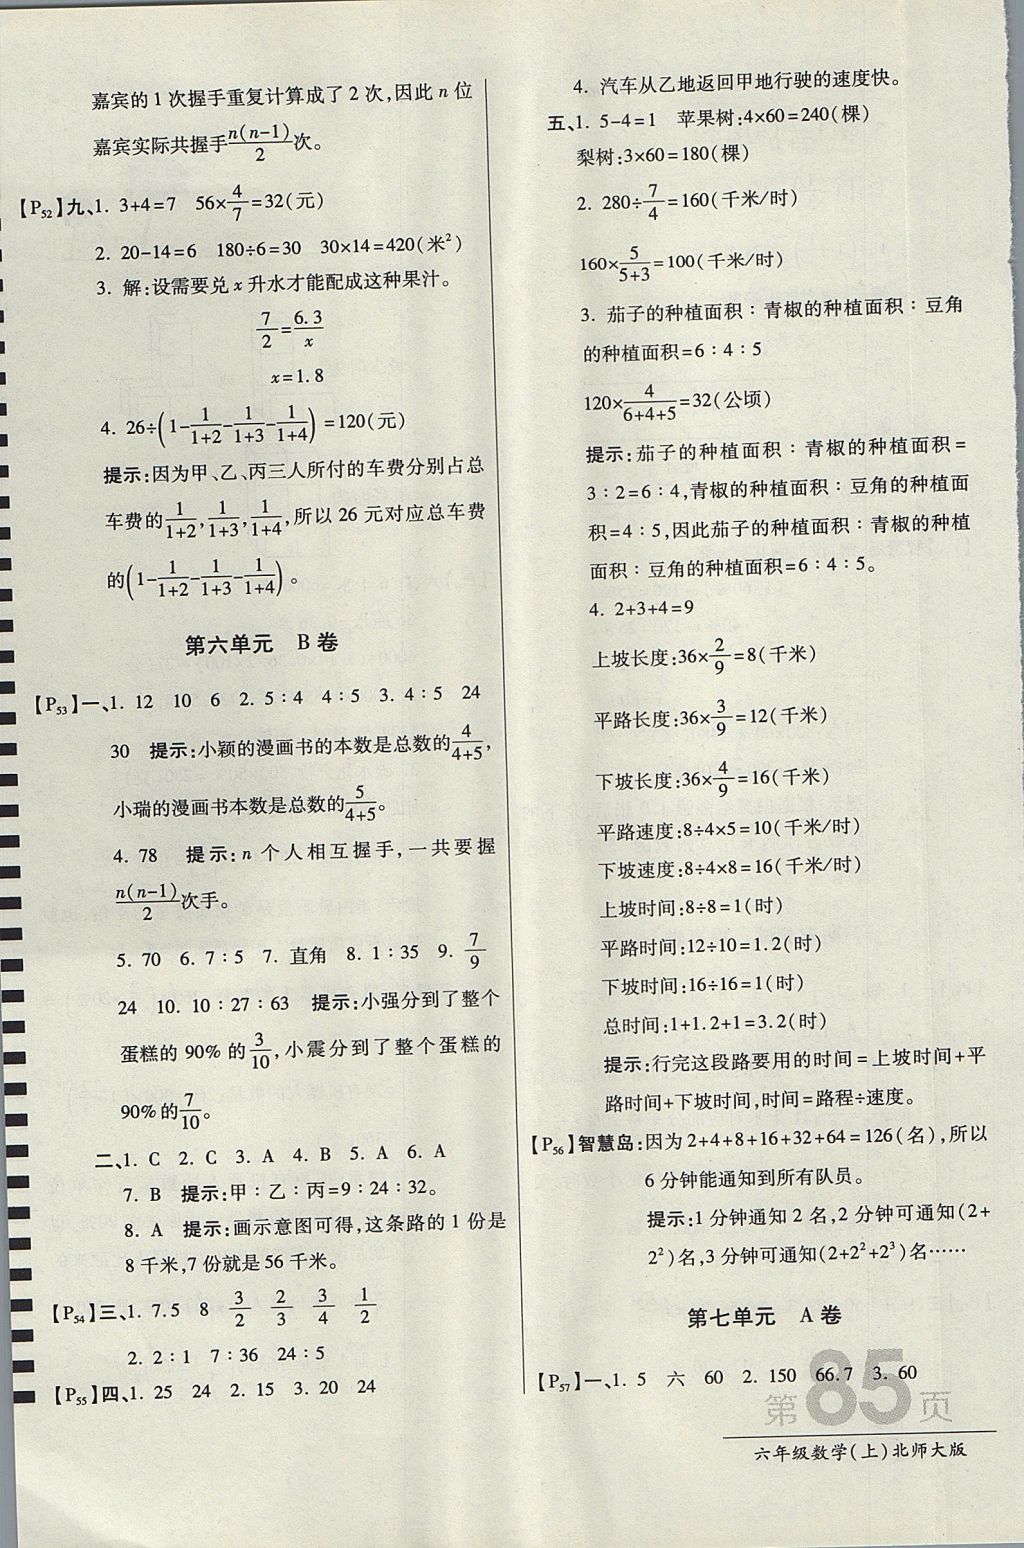 嘉宾的 1 次握手重复计算成了 2 次,因此 n 位
嘉宾实际共握手n(n-1)/2次。
【P52】九、1. 3+4=7 56×4/7=32(元)
2. 20-14=6 180÷6=30 30×14=420(米²)
3. 解:设需要兑 x 升水才能配成这种果汁。
7/2=6.3/x
x=1.8
4. 26÷(1-1/(1+2)-1/(1+3)-1/(1+4))=120(元)
提示:因为甲、乙、丙三人所付的车费分别占总
车费的1/(1+2),1/(1+3),1/(1+4),所以 26 元对应总车费
的(1-1/(1+2)-1/(1+3)-1/(1+4))。
第六单元 B 卷
【P53】一、1. 12 10 6 2. 5∶4 4∶5 3. 4∶5 24
30 提示:小颖的漫画书的本数是总数的4/(4+5),
小瑞的漫画书本数是总数的5/(4+5)。
4. 78 提示:n 个人相互握手,一共要握
n(n-1)/2次手。
5. 70 6. 7∶5 7. 直角 8. 1∶35 9. 7/9
24 10. 10∶27∶63 提示:小强分到了整个
蛋糕的 90% 的3/10,小震分到了整个蛋糕的
90%的7/10。
二、1. C 2. C 3. A 4. B 5. A 6. A
7. B 提示:甲∶乙∶丙=9∶24∶32。
8. A 提示:画示意图可得,这条路的 1 份是
8 千米,7 份就是 56 千米。
【P54】三、1. 7.5 8 3/2 2/3 3/4 1/2
2. 2∶1 7∶36 24∶5
【P55】四、1. 25 24 2. 15 3. 20 24
4. 汽车从乙地返回甲地行驶的速度快。
五、1. 5-4=1 苹果树:4×60=240(棵)
梨树:3×60=180(棵)
2. 280÷7/4=160(千米/时)
160×5/(5+3)=100(千米/时)
3. 茄子的种植面积∶青椒的种植面积∶豆角
的种植面积=6∶4∶5
120×4/(6+4+5)=32(公顷)
提示:茄子的种植面积∶青椒的种植面积=
3∶2=6∶4,青椒的种植面积∶豆角的种植面
积=4∶5,因此茄子的种植面积∶青椒的种植
面积∶豆角的种植面积=6∶4∶5。
4. 2+3+4=9
上坡长度:36×2/9=8(千米)
平路长度:36×3/9=12(千米)
下坡长度:36×4/9=16(千米)
平路速度:8÷4×5=10(千米/时)
下坡速度:8÷4×8=16(千米/时)
上坡时间:8÷8=1(时)
平路时间:12÷10=1.2(时)
下坡时间:16÷16=1(时)
总时间:1+1.2+1=3.2(时)
提示:行完这段路要用的时间=上坡时间+平
路时间+下坡时间,时间=路程÷速度。
【P56】智慧岛:因为 2+4+8+16+32+64=126(名),所以
6 分钟能通知到所有队员。
提示:1 分钟通知 2 名,2 分钟可通知(2+
2²)名,3 分钟可通知(2+2²+2³)名……
第七单元 A 卷
【P57】一、1. 5 六 60 2. 150 66.7 3. 60
第85页
六年级数学(上)北师大版